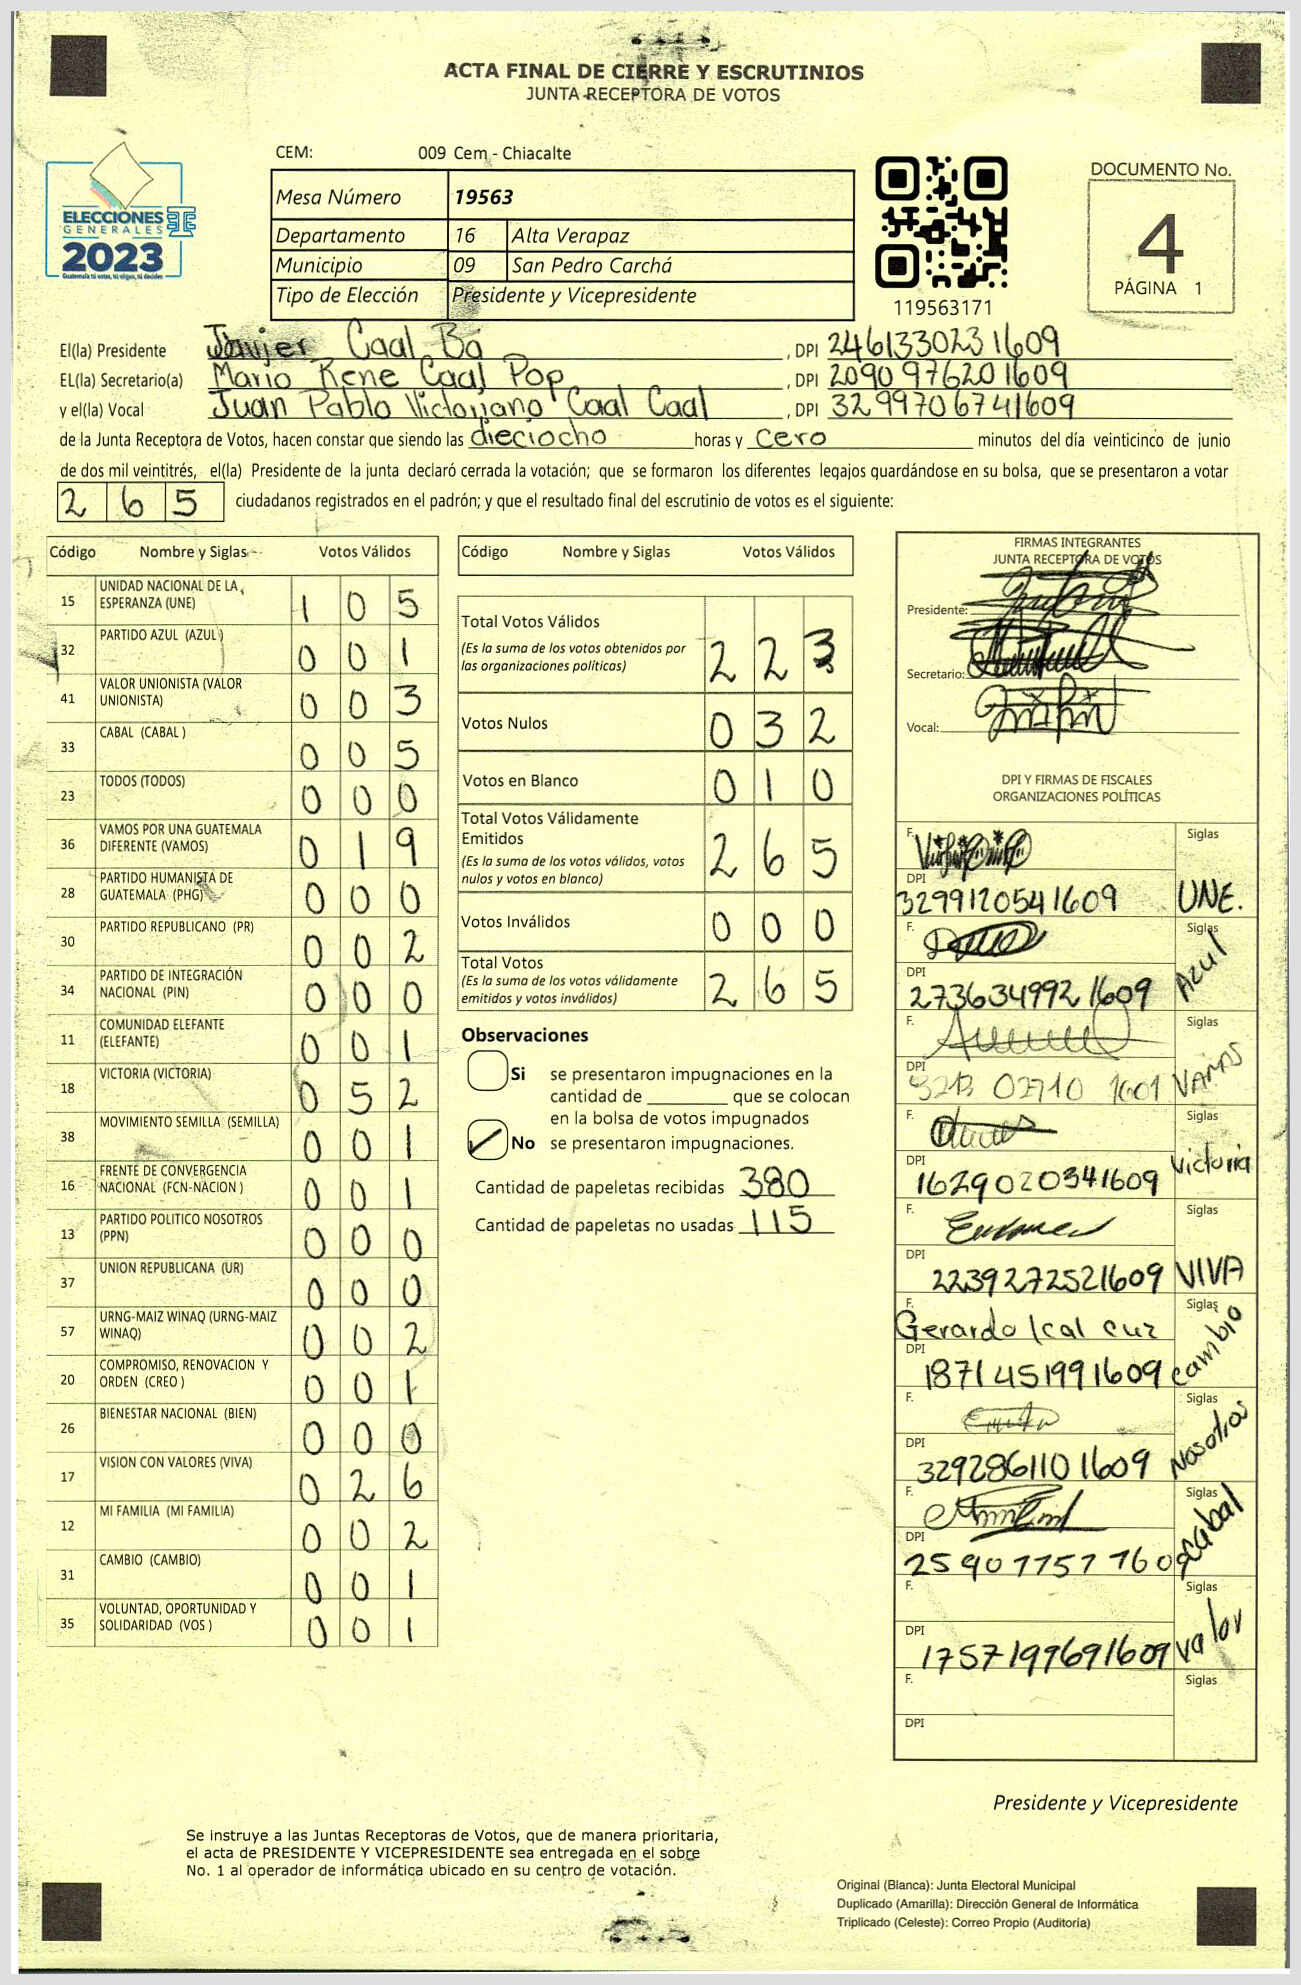 ACTA FINAL DE CIERRE Y ESCRUTINIOS
JUNTA RECEPTORA DE VOTOS
CEM: 009 Cem - Chiacalte
Mesa Número 19563
Departamento 16 Alta Verapaz
Municipio 09 San Pedro Carchá
Tipo de Elección Presidente y Vicepresidente
ELECCIONES
GENERALES
2023
Guatemala tú votas, tú eliges, tú decides
119563171
DOCUMENTO No.
4
PÁGINA 1
El(la) Presidente Javier Caal Ba , DPI 2461330231609
EL(la) Secretario(a) Mario Rene Caal Pop , DPI 2090976201609
y el(la) Vocal Juan Pablo Victoriano Caal Caal , DPI 3299706741609
de la Junta Receptora de Votos, hacen constar que siendo las dieciocho horas y cero minutos del día veinticinco de junio
de dos mil veintitrés, el(la) Presidente de la junta declaró cerrada la votación; que se formaron los diferentes legajos guardándose en su bolsa, que se presentaron a votar
2 6 5 ciudadanos registrados en el padrón; y que el resultado final del escrutinio de votos es el siguiente:
Código Nombre y Siglas Votos Válidos
15 UNIDAD NACIONAL DE LA
ESPERANZA (UNE) 1 0 5
32 PARTIDO AZUL (AZUL) 0 0 1
41 VALOR UNIONISTA (VALOR
UNIONISTA) 0 0 3
33 CABAL (CABAL ) 0 0 5
23 TODOS (TODOS) 0 0 0
36 VAMOS POR UNA GUATEMALA
DIFERENTE (VAMOS) 0 1 9
28 PARTIDO HUMANISTA DE
GUATEMALA (PHG) 0 0 0
30 PARTIDO REPUBLICANO (PR) 0 0 2
34 PARTIDO DE INTEGRACIÓN
NACIONAL (PIN) 0 0 0
11 COMUNIDAD ELEFANTE
(ELEFANTE) 0 0 1
18 VICTORIA (VICTORIA) 0 5 2
38 MOVIMIENTO SEMILLA (SEMILLA) 0 0 1
16 FRENTE DE CONVERGENCIA
NACIONAL (FCN-NACION ) 0 0 1
13 PARTIDO POLITICO NOSOTROS
(PPN) 0 0 0
37 UNION REPUBLICANA (UR) 0 0 0
57 URNG-MAIZ WINAQ (URNG-MAIZ
WINAQ) 0 0 2
20 COMPROMISO, RENOVACION Y
ORDEN (CREO ) 0 0 1
26 BIENESTAR NACIONAL (BIEN) 0 0 0
17 VISION CON VALORES (VIVA) 0 2 6
12 MI FAMILIA (MI FAMILIA) 0 0 2
31 CAMBIO (CAMBIO) 0 0 1
35 VOLUNTAD, OPORTUNIDAD Y
SOLIDARIDAD (VOS ) 0 0 1
Código Nombre y Siglas Votos Válidos
Total Votos Válidos
(Es la suma de los votos obtenidos por
las organizaciones políticas) 2 2 3
Votos Nulos 0 3 2
Votos en Blanco 0 1 0
Total Votos Válidamente
Emitidos
(Es la suma de los votos válidos, votos
nulos y votos en blanco) 2 6 5
Votos Inválidos 0 0 0
Total Votos
(Es la suma de los votos válidamente
emitidos y votos inválidos) 2 6 5
Observaciones
Si se presentaron impugnaciones en la
cantidad de ________ que se colocan
en la bolsa de votos impugnados
No se presentaron impugnaciones.
Cantidad de papeletas recibidas 380
Cantidad de papeletas no usadas 115
FIRMAS INTEGRANTES
JUNTA RECEPTORA DE VOTOS
Presidente:
Secretario:
Vocal:
DPI Y FIRMAS DE FISCALES
ORGANIZACIONES POLÍTICAS
F. Siglas
DPI
3299120541609 UNE.
F. Siglas
DPI
2736349921609 Azul
F. Siglas
DPI
VAMOS
F. Siglas
DPI
1629020341609 Victoria
F. Siglas
DPI
2239272521609 VIVA
F. Siglas
Gerardo Ical cuz
DPI
1871451991609 cambio
F. Siglas
DPI
3292861101609 Nosotros
F. Siglas
DPI
cabal
F. Siglas
DPI
1757199691609 valor
F. Siglas
DPI
Presidente y Vicepresidente
Se instruye a las Juntas Receptoras de Votos, que de manera prioritaria,
el acta de PRESIDENTE Y VICEPRESIDENTE sea entregada en el sobre
No. 1 al operador de informática ubicado en su centro de votación.
Original (Blanca): Junta Electoral Municipal
Duplicado (Amarilla): Dirección General de Informática
Triplicado (Celeste): Correo Propio (Auditoría)